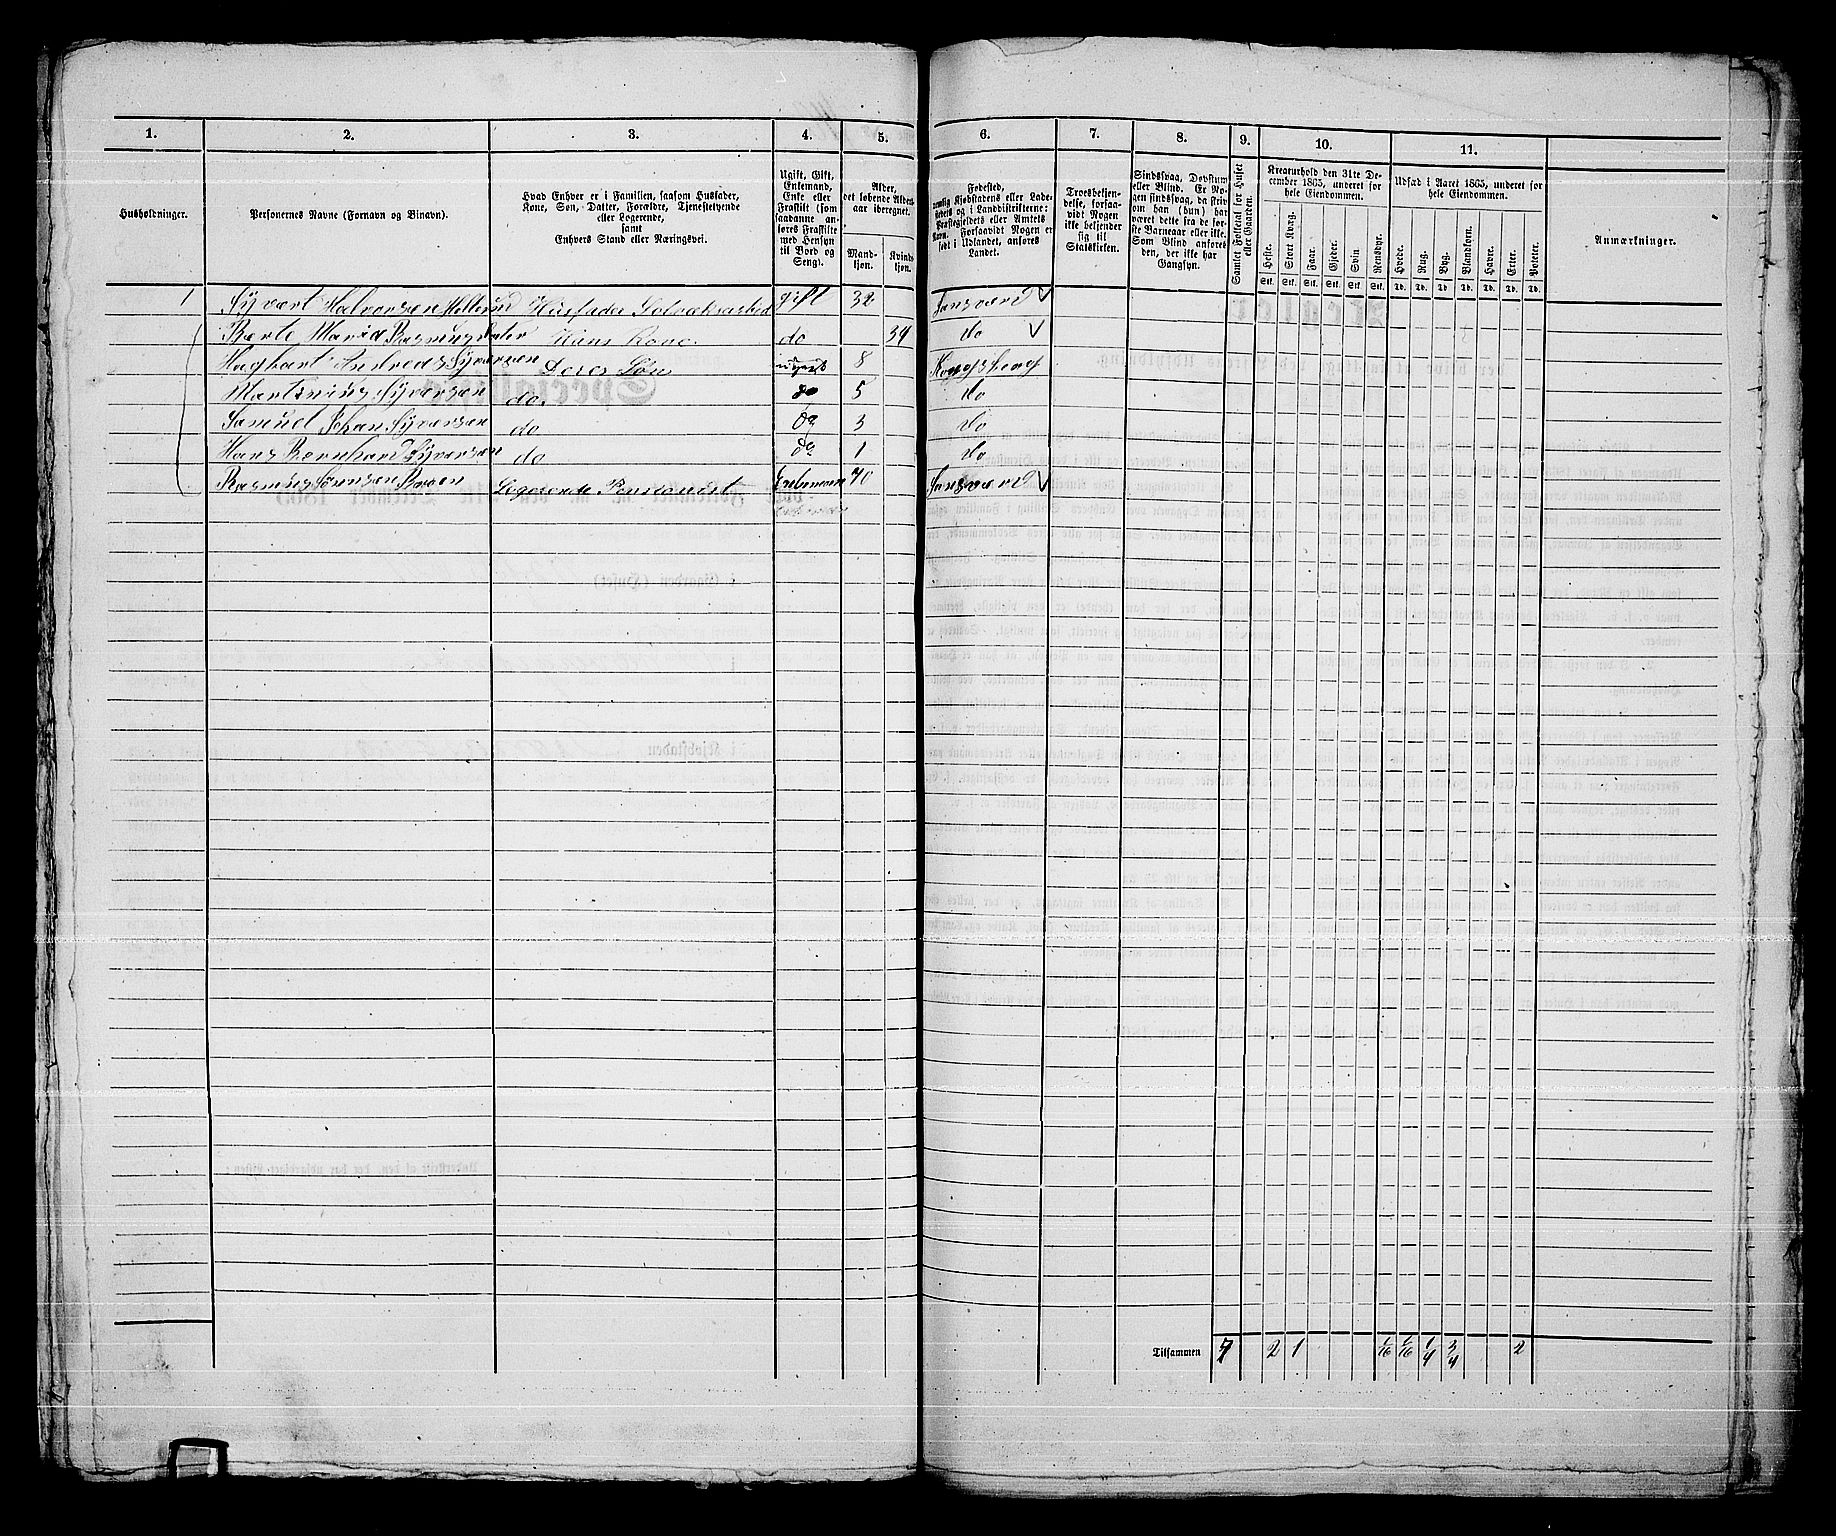 1. 2. 3. 4. 5. 6. 7. 8. 9. 10. 11.
Husholdninger.
Personernes Navne (Fornavn og Binavn).
Hvad Enhver er i Familien, saasom Husfader,
Kone, Søn, Datter, Forældre, Tjenestetyende
eller Logerende,
samt
Enhvers Stand eller Næringsvei.
Ugift, Gift,
Enkemand,
Enke eller
Fraskilt (som
saadanne an-
føres Fraskilte
med Hensyn
til Bord og
Seng).
Alder,
det løbende Alders-
aar iberegnet.
Mand-
kjøn.
Kvind-
kjøn.
Fødested,
nemlig Kjøbstadens eller Lade-
stedets og i Landdistrikterne:
Præstegjeldets eller Amtets
Navn. Forsaavidt Nogen er
født i Udlandet, anføres
Landet.
Troesbekjen-
delse, forsaa-
vidt Nogen
ikke bekjender
sig til
Statskirken.
Sindssvag, Døvstum
eller Blind. Er No-
gen sindssvag, da skriv
om han (hun) har
været dette fra de før-
ste Barneaar eller ikke.
Som Blind anføres
den, der ikke har
Gangsyn.
Samlet Folketal for Huset
eller Gaarden.
Kreaturhold den 31te De-
cember 1865, under et for
hele Eiendommen.
Heste. Stort Kvæg. Faar. Gjeder. Svin. Rensdyr.
Stk. Stk. Stk. Stk. Stk. Stk.
Udsæd i Aaret 1865, under et for
hele Eiendommen.
Hvede. Rug. Byg. Blandkorn. Havre. Erter. Poteter.
Td. Td. Td. Td. Td. Td. Td.
Anmærkninger.
1 Syvært Halvorsen Hellerud Husfader Sølværksarbeid gift 32 Sansværd
Berte Maria Rasmusdater Hans Kone do 34 do
Hagbart Andreas Syversen Deres Søn ugivt 8 Kongsberg
Martinius Syversen do. do 5 do
Samuel Johan Syversen do do 3 do
Hans Bernhard Syversen do do 1 do
Rasmus Sørensen Logerende Pensionist Enkemann 70 Sansværd
Tilsammen 7 2 1 1/16 1/16 1/4 3/4 2